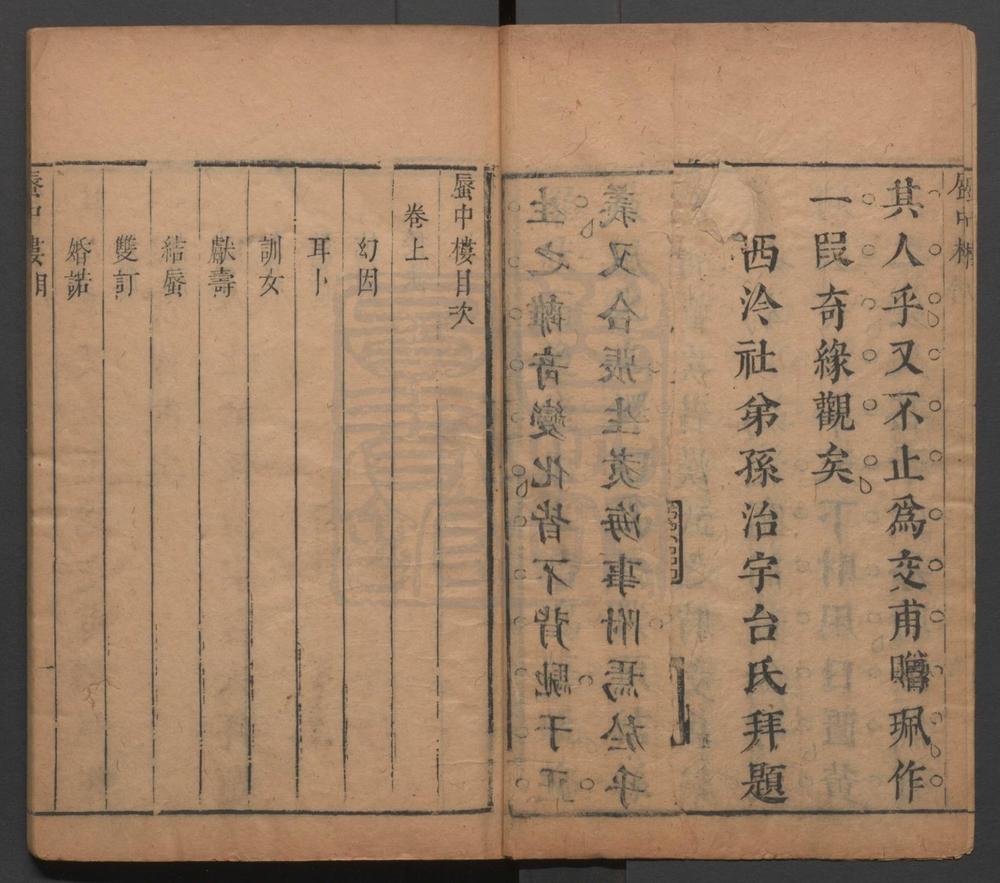 蜃中樓
其人乎又不止爲交甫贈珮作
一叚奇緣觀矣
西泠社弟孫治宇台氏拜題
蜃中樓目次
卷上
幻因
耳卜
訓女
獻壽
結蜃
雙訂
婚諾
蜃中樓目